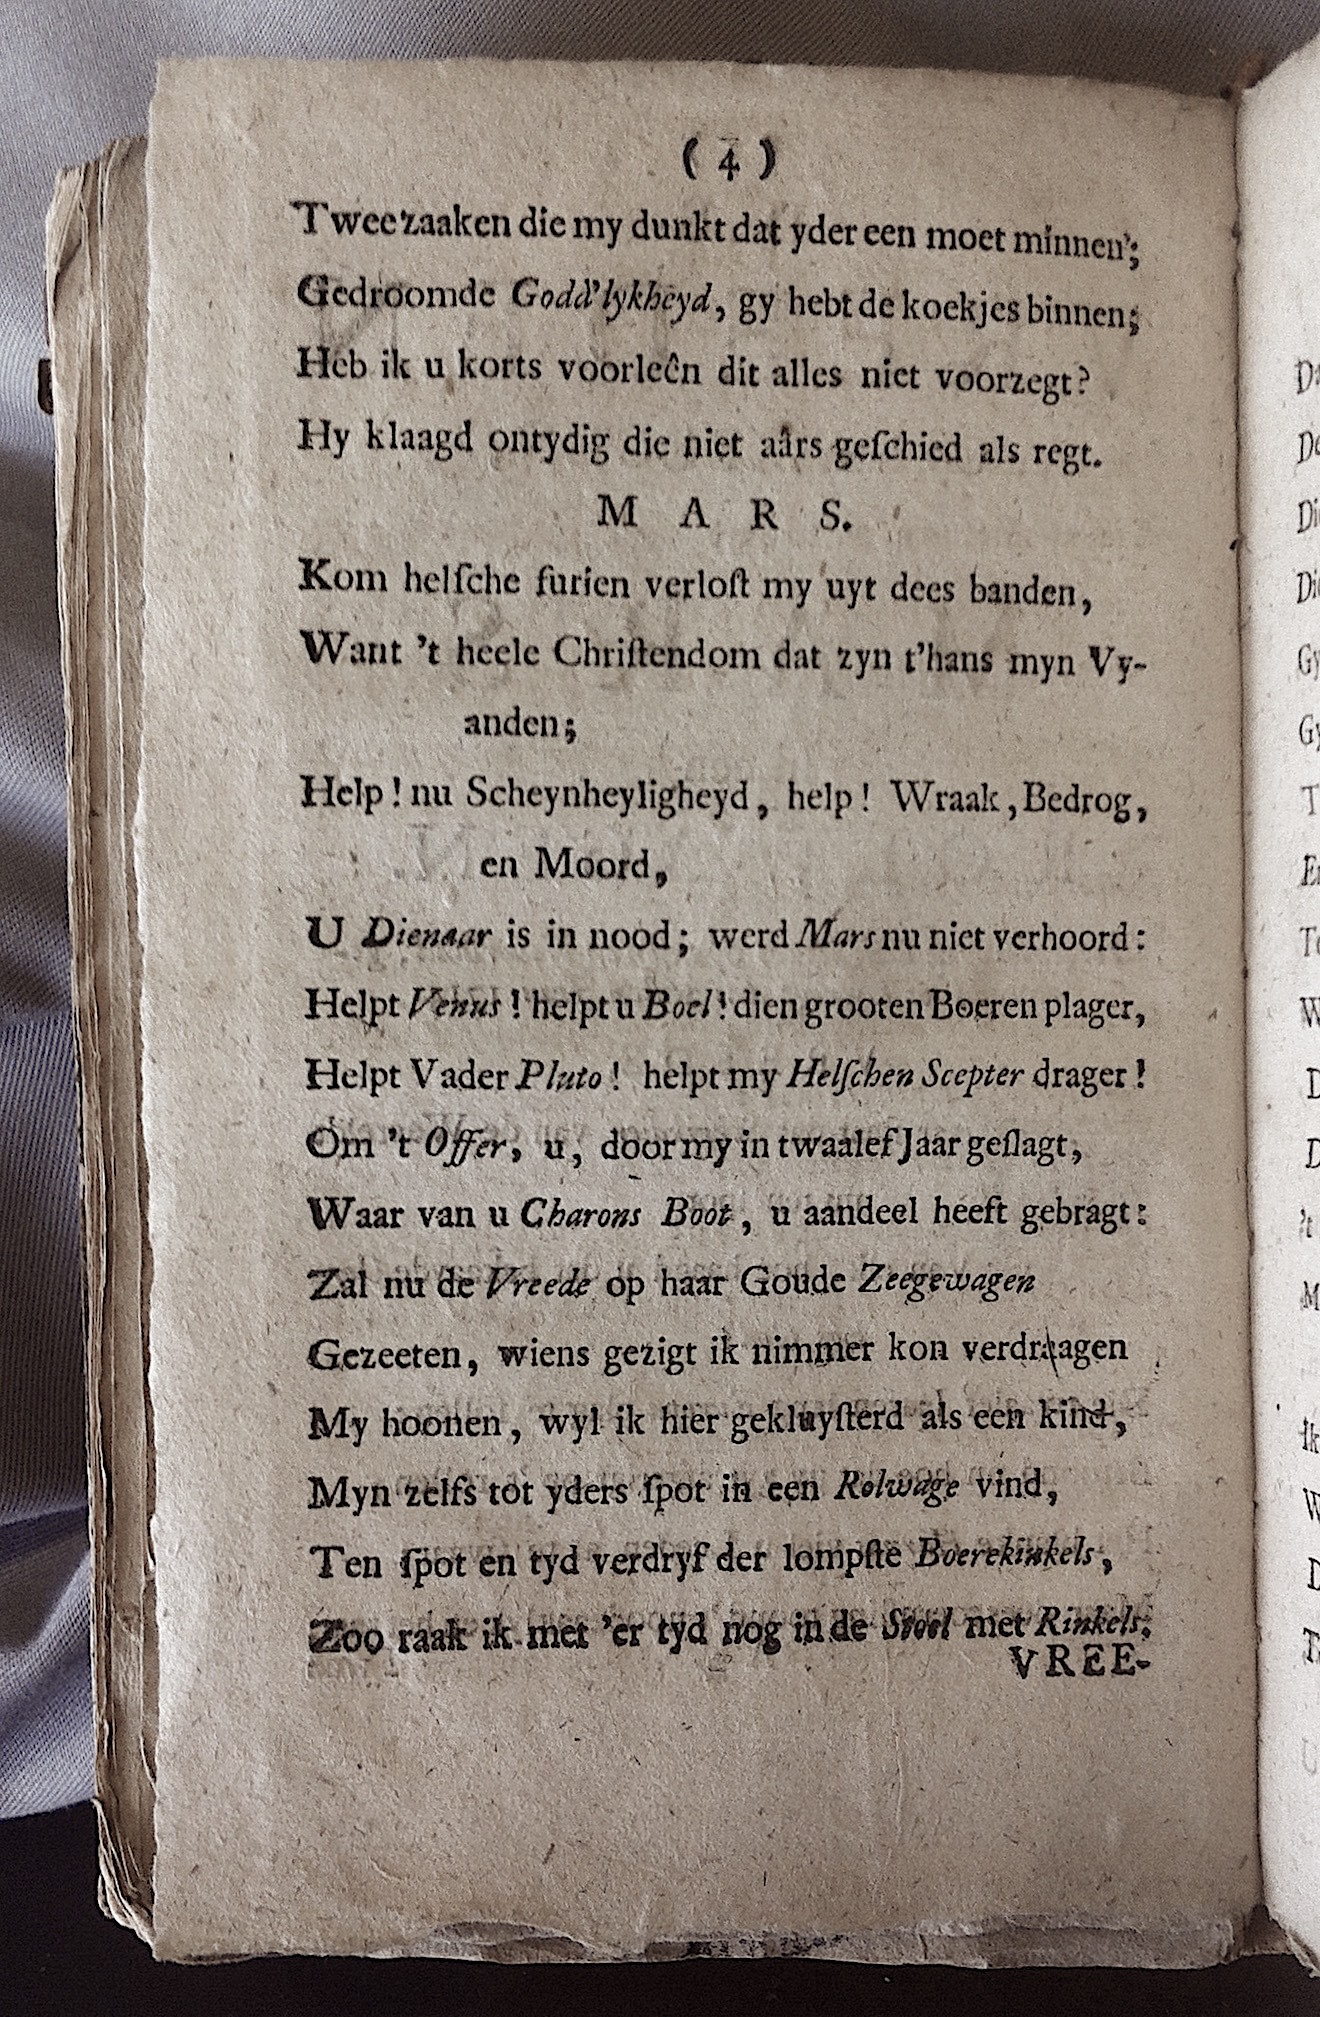 ( 4 )
Twee zaaken die my dunkt dat yder een moet minnen;
Gedroomde Godd'lykheyd, gy hebt de koekjes binnen;
Heb ik u korts voorleên dit alles niet voorzegt?
Hy klaagd ontydig die niet aârs geſchied als regt.
M A R S.
Kom helſche furien verloſt my uyt dees banden,
Want 't heele Chriſtendom dat zyn t'hans myn Vy-
anden;
Help! nu Scheynheyligheyd, help! Wraak, Bedrog,
en Moord,
U Dienaar is in nood; werd Mars nu niet verhoord:
Helpt Venus! helpt u Boel! dien grooten Boeren plager,
Helpt Vader Pluto! helpt my Helſchen Scepter drager!
Om 't Offer, u, door my in twaalef Jaar geſlagt,
Waar van u Charons Boot, u aandeel heeft gebragt:
Zal nu de Vreede op haar Goude Zeegewagen
Gezeeten, wiens gezigt ik nimmer kon verdraagen
My hoonen, wyl ik hier gekluyſterd als een kind,
Myn zelfs tot yders ſpot in een Rolwage vind,
Ten ſpot en tyd verdryf der lompſte Boerekinkels,
Zoo raak ik met 'er tyd nog in de Stoel met Rinkels.
VREE-